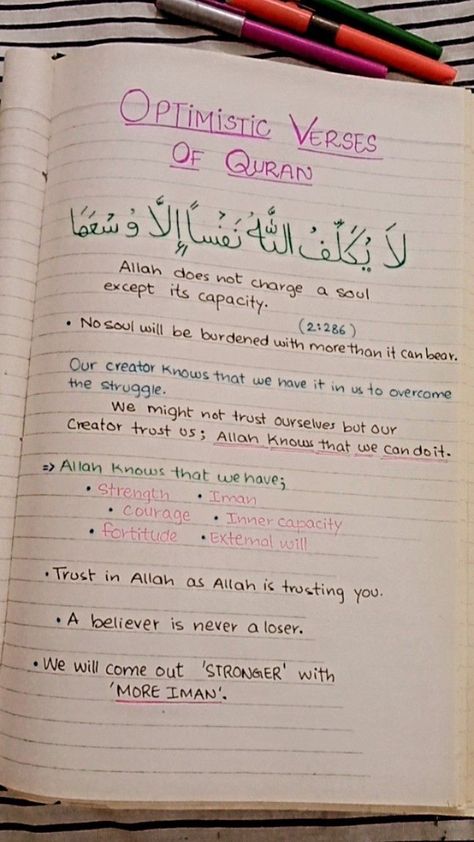 OPTIMISTIC VERSES
OF QURAN
لاَ يُكَلِّفُ اللَّهُ نَفْساً إِلَّا وُسْعَهَا
Allah does not charge a soul
except its capacity.
(2:286)
• No soul will be burdened with more than it can bear.
Our creator knows that we have it in us to overcome
the struggle.
We might not trust ourselves but our
Creator trust us; Allah knows that we can do it.
⇒ Allah knows that we have;
• Strength • Iman
• Courage • Inner capacity
• fortitude • External will
• Trust in Allah as Allah is trusting you.
• A believer is never a loser.
• We will come out 'STRONGER' with
'MORE IMAN'.